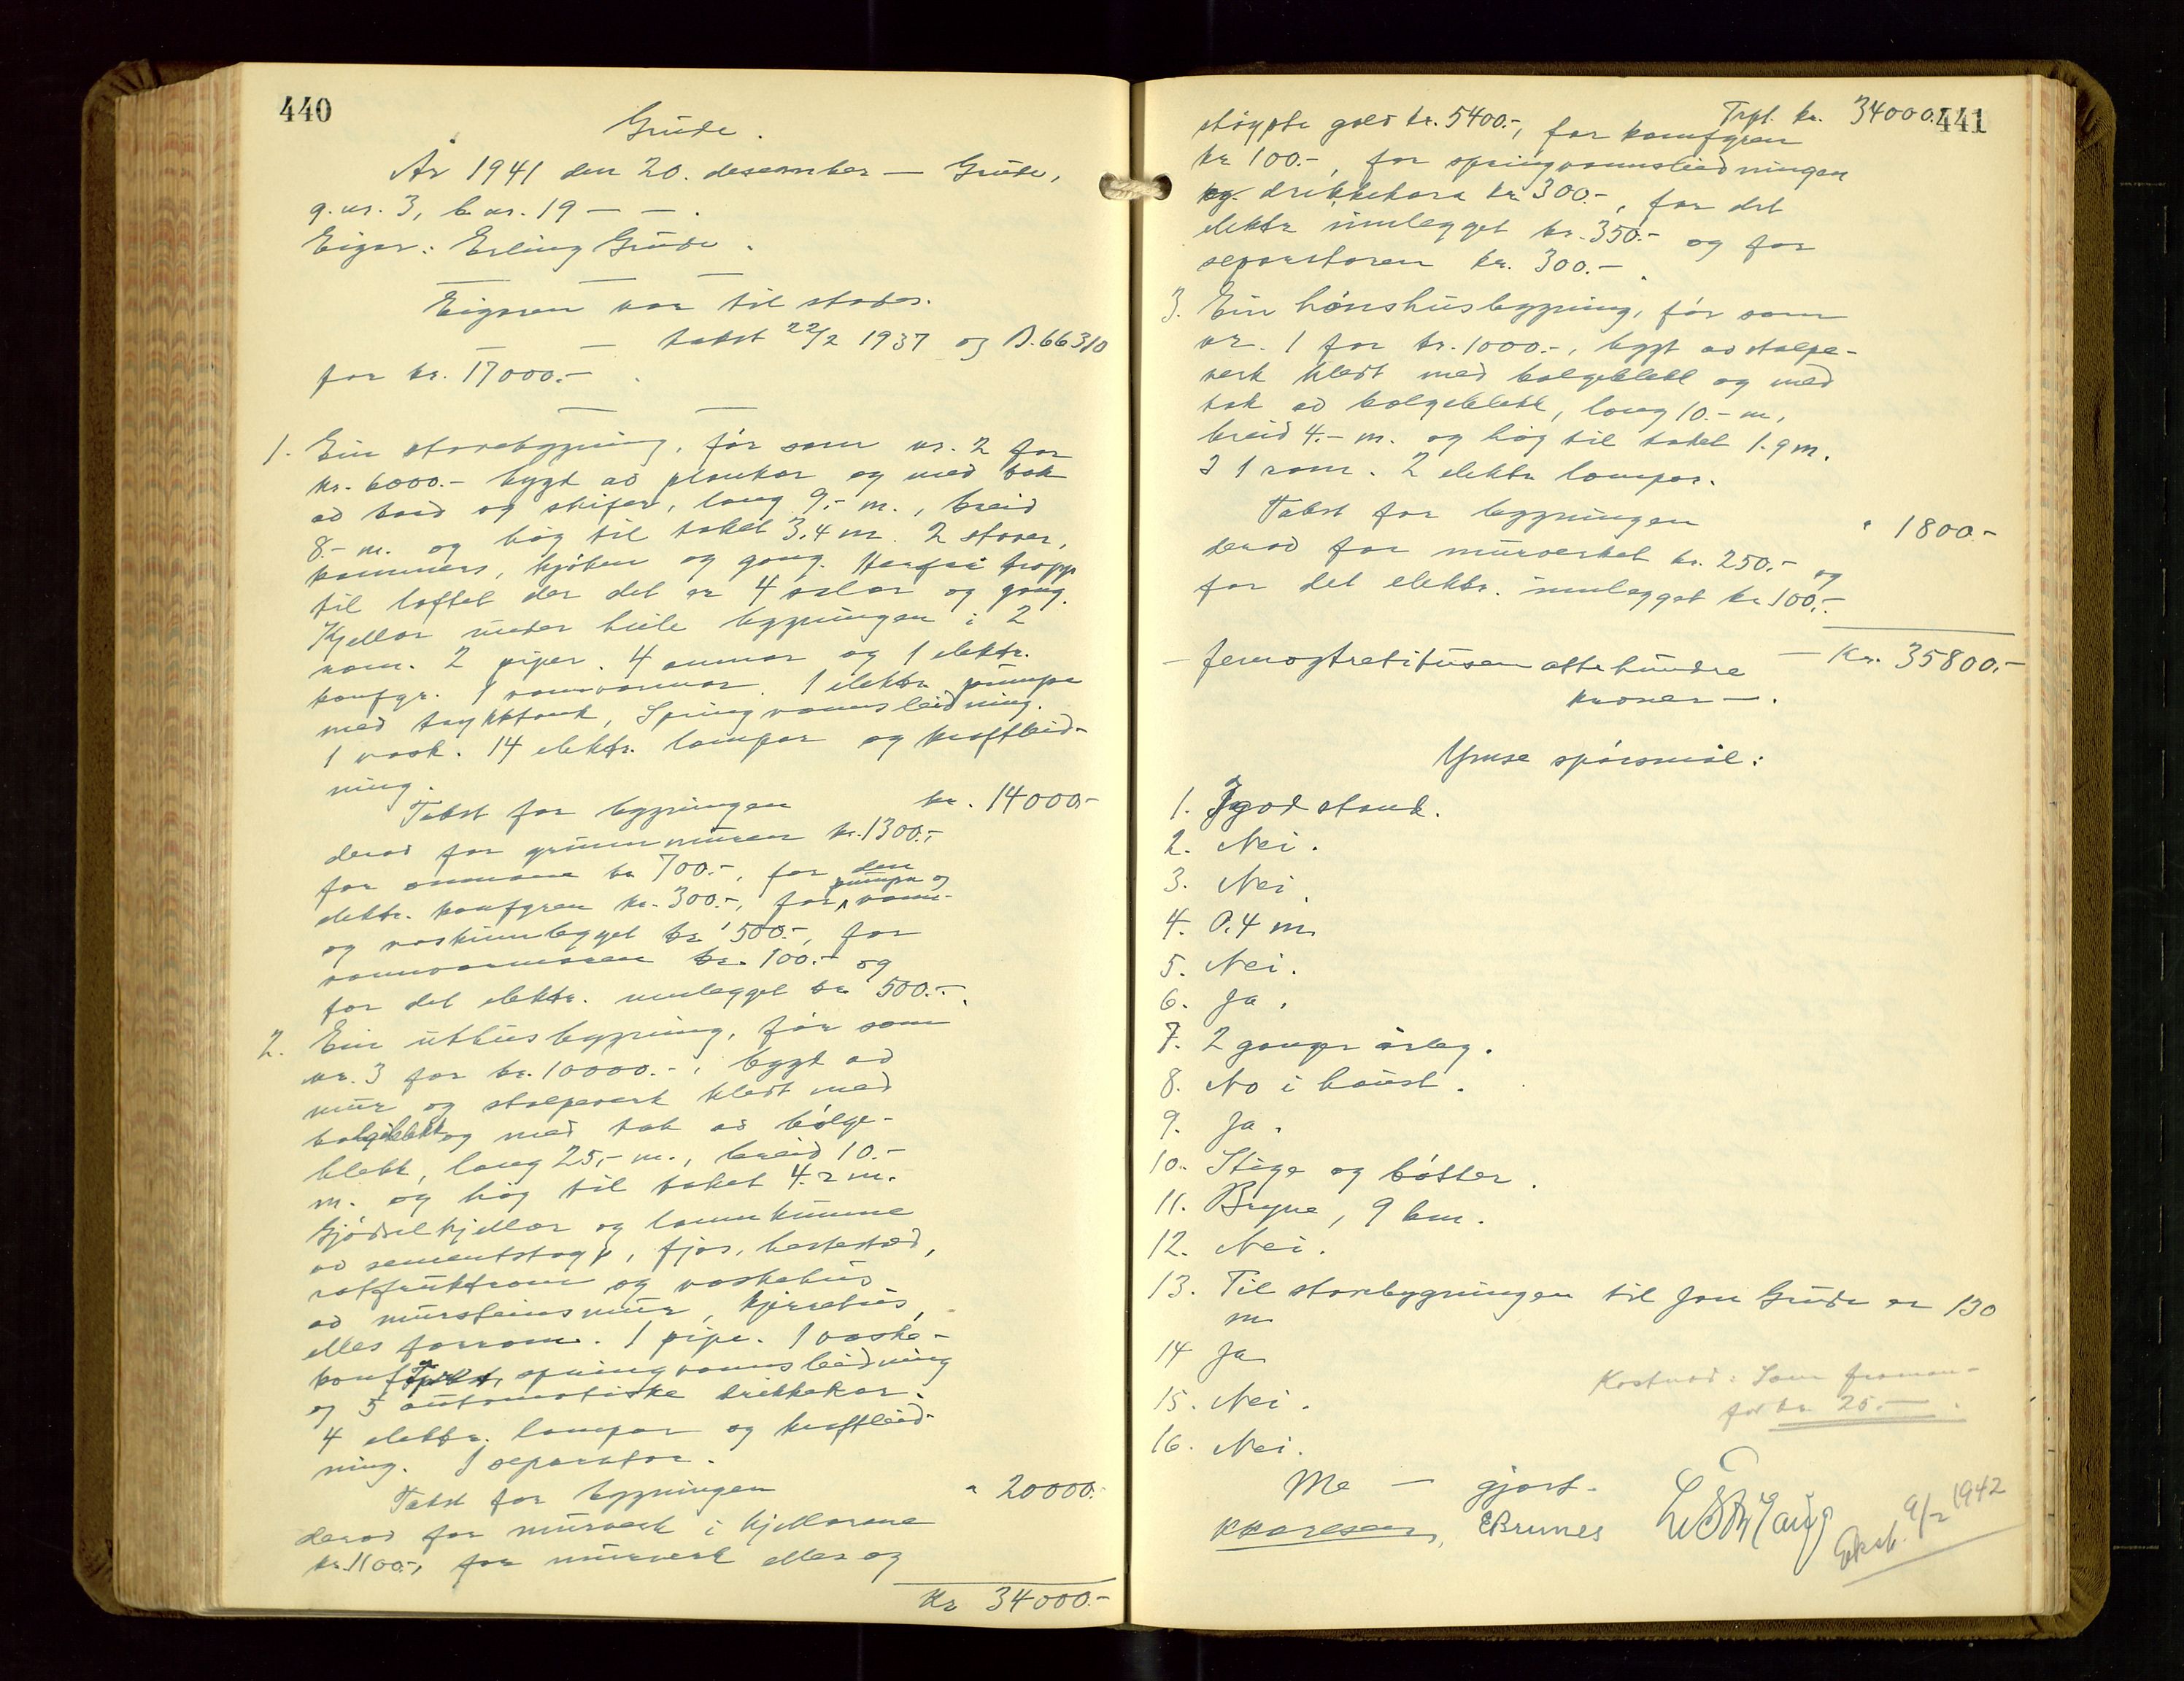 440
Grude.
År 1941 den 20. desember — Grude,
g.nr. 3, b.nr. 19 — — .
Eigar: Erling Grude.
Eigaren var til stades.
— — takst 22/2 1937 og D.66310
for kr. 17000.- .
1. Ein stovebygning, før som nr. 2 for
kr. 6000.- bygt av plankar og med tak
av bord og skifer, lang 9,- m., breid
8.- m. og høg til taket 3,4 m. 2 stover,
kammers, kjøken og gang. Herfrå tropp
til loftet der det er 4 salar og gang.
Kjellar under heile bygningen i 2
rom. 2 piper. 4 omnar og 1 elektr.
komfyr. 1 vannvarmar. 1 elektr. pumpe
med trykktank, Springvannsleidning.
1 vask. 14 elektr. lampar og kraftleid-
ning.
Takst for bygningen kr. 14000.-
derav for grunnmuren kr. 1300.-,
for omnane kr 700.-, for den
elektr. komfyren kr. 300.-, for pumpa og vann-
og vaskinnlegget kr 500.-, for
vannvarmaren kr. 100.- og
for det elektr. innlegget kr 500.-.
2. Ein uthusbygning, før som
nr. 3 for kr. 10000.-, bygt av
mur og stolpeverk kledt med
bølgeblekk og med tak av bølge-
blekk, lang 25,- m., breid 10.-
m. og høg til taket 4.2 m.
Gjødselkjellar og lannkumme
av sementstøyp, fjos, hestestad,
rotfruktrom og vaskehus
av mursteinsmur, kjerrehus,
elles forrom. 1 pipe. 1 vaske-
komfyr, springvannsleidning
og 5 automatiske drikkekar.
4 elektr. lampar og kraftleid-
ning. 1 separator.
Takst for bygningen " 20000.-
derav for murverk i kjellarane
kr. 1100.-, for murverk elles og
Kr 34000.-
441
Trpt. kr. 34000.-
støypte golv kr. 5400.-, for komfyren
kr 100.-, for springvannsleidningen
og drikkekara kr 300.-, for det
elektr innlegget kr. 350.- og for
separatoren kr. 300.- .
3. Ein hønshusbygning, før som
nr. 1 for kr. 1000.-, bygt av stolpe-
verk kledt med bølgeblekk og med
tak av bølgeblekk, lang 10.- m,
breid 4.- m. og høg til taket 1.9 m.
I 1 rom. 2 elektr lampar.
Takst for bygningen " 1800.-
derav for murverket kr. 250.- og
for det elektr. innlegget kr 100.-.
— femogtrettitusen atte hundre — Kr. 35800.-
kroner — .
Ymse spørsmål:
1. I god stand.
2. Nei.
3. Nei
4. 0.4 m
5. Nei.
6. Ja.
7. 2 ganger årleg.
8. No i haust.
9. Ja.
10. Stige og bøtter.
11. Bryne, 9 km.
12. Nei.
13. Til stovebygningen til Jon Grude er 130
m
14 Ja
15. Nei.
16. Nei.
Kostnad: Som framan-
for kr. 25.— .
Me — gjort.
EBrunes
Eksb. 9/2 1942